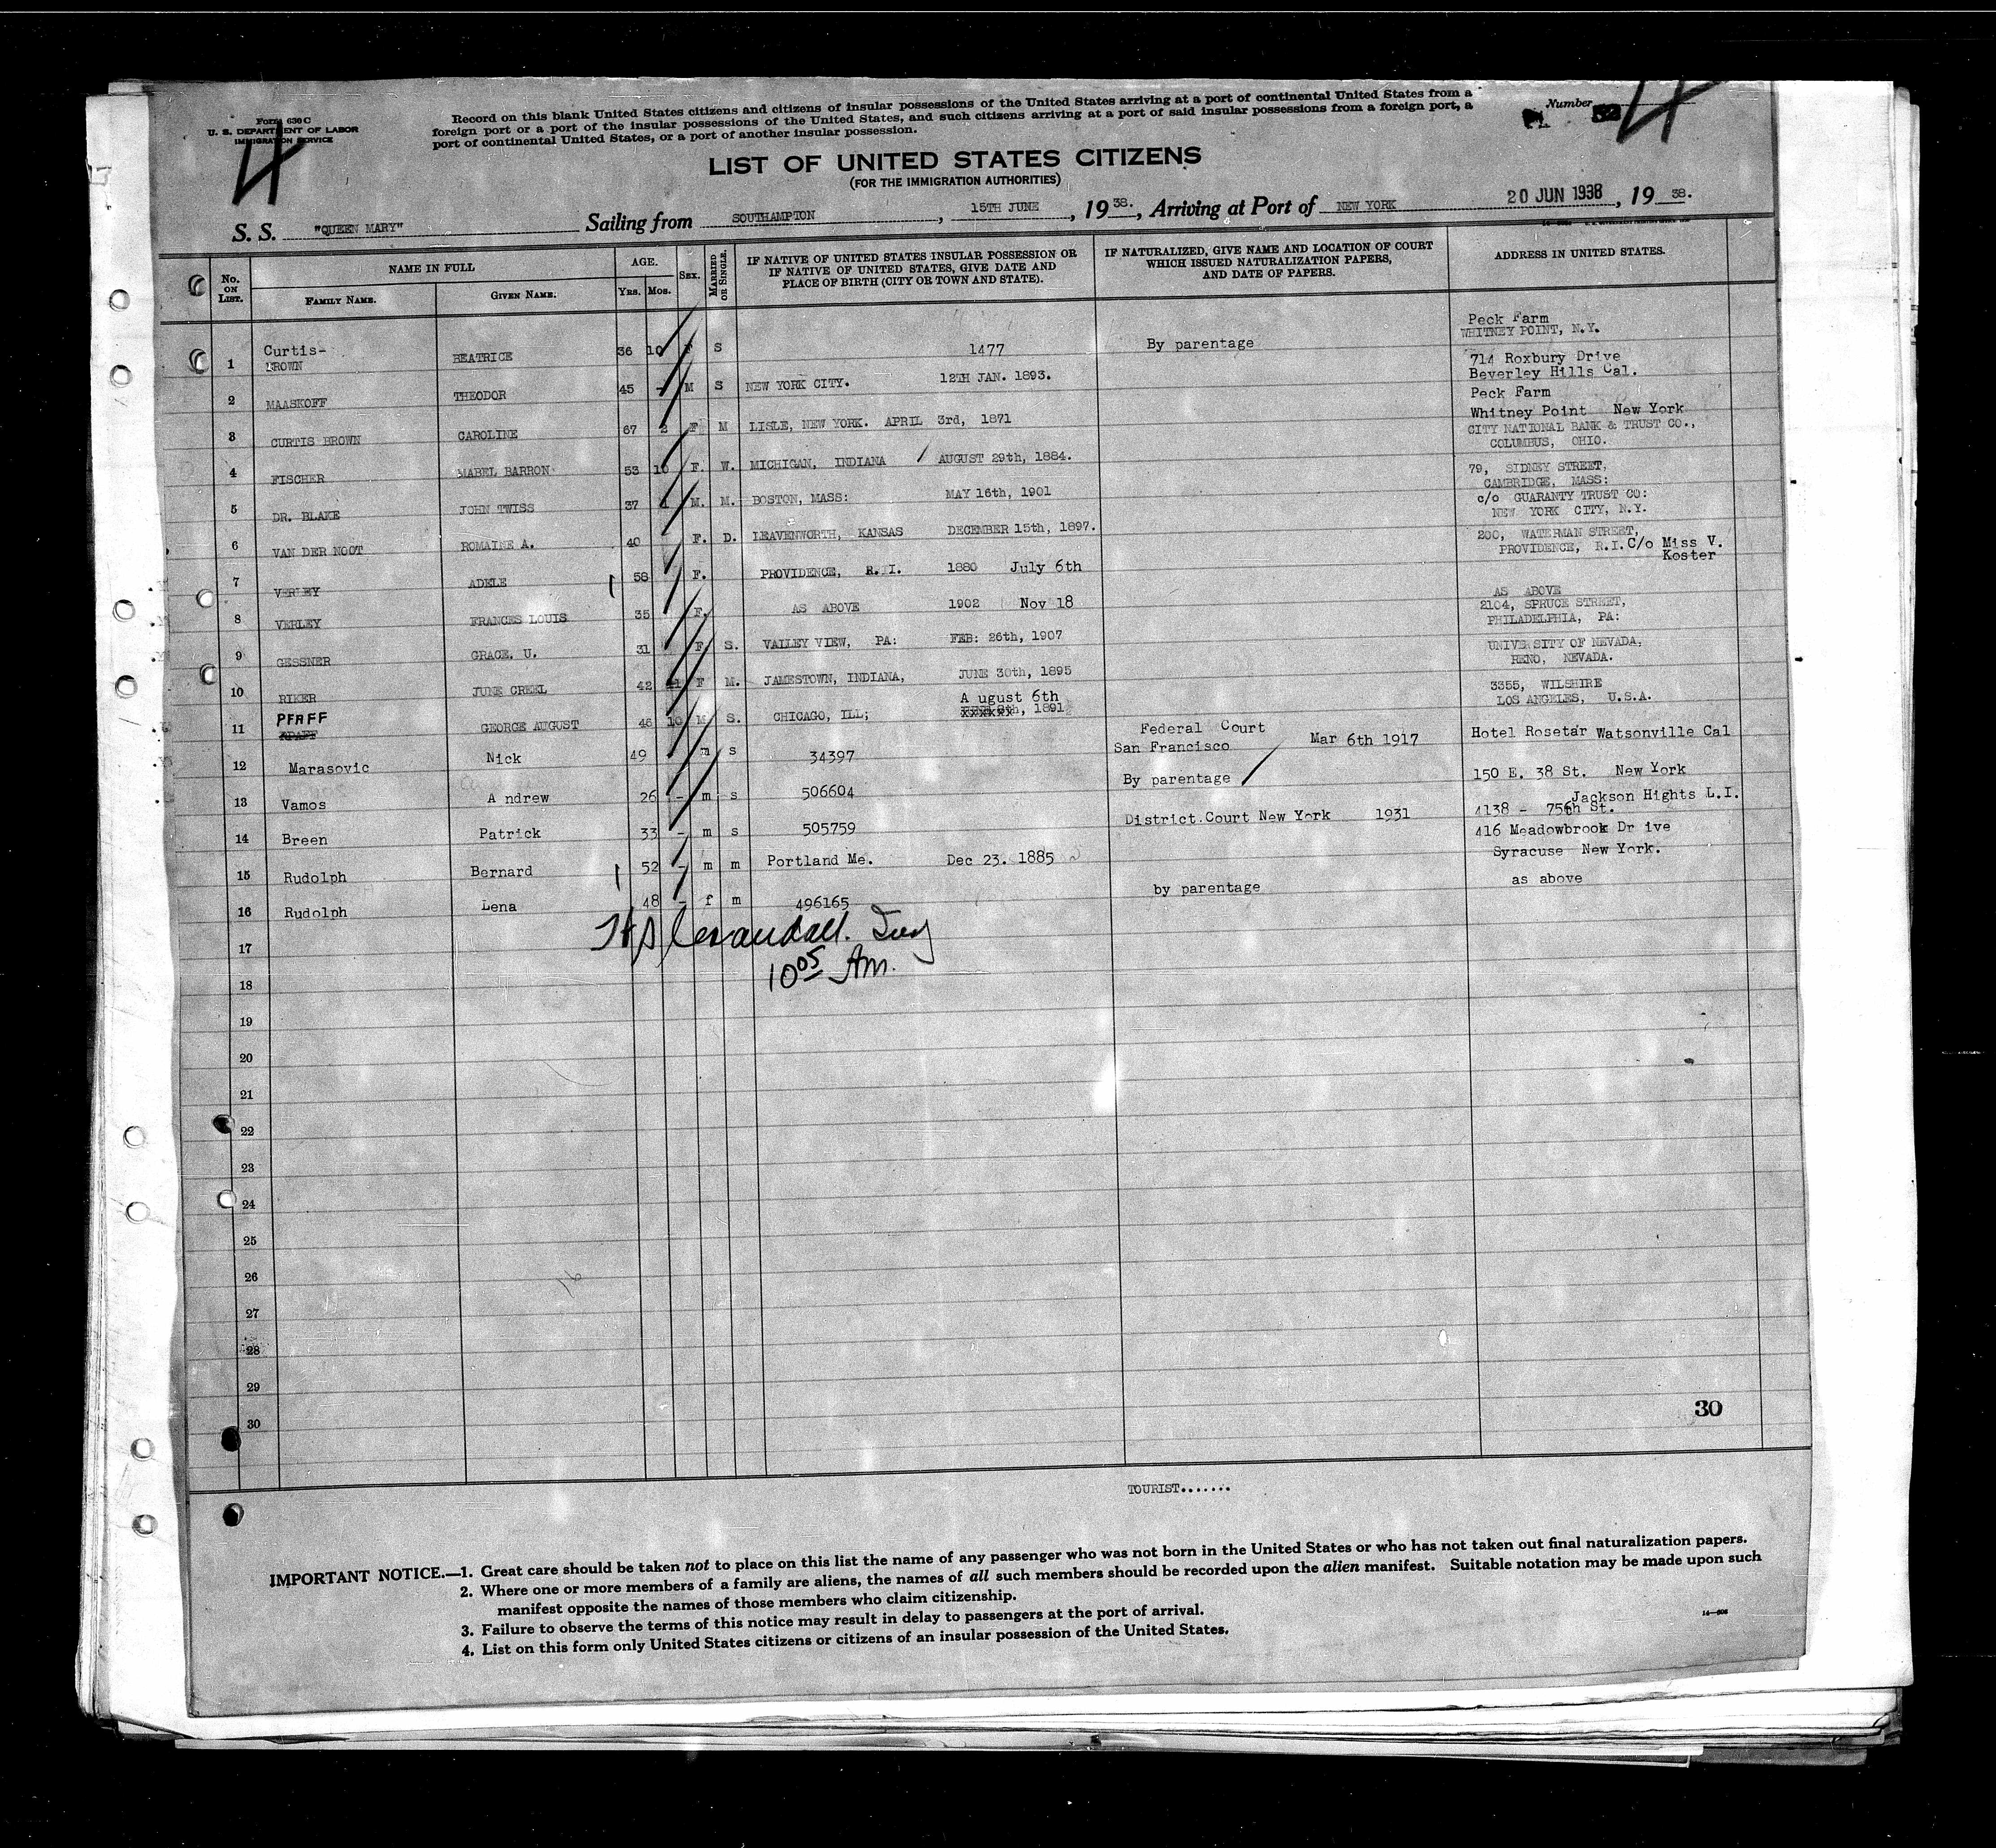 Form 630 C
U. S. DEPARTMENT OF LABOR
IMMIGRATION SERVICE
4
Record on this blank United States citizens and citizens of insular possessions of the United States arriving at a port of continental United States from a
foreign port or a port of the insular possessions of the United States, and such citizens arriving at a port of said insular possessions from a foreign port, a
port of continental United States, or a port of another insular possession.
Number 52 4
LIST OF UNITED STATES CITIZENS
(FOR THE IMMIGRATION AUTHORITIES)
S. S. "QUEEN MARY" Sailing from SOUTHAMPTON, 15TH JUNE, 1938., Arriving at Port of NEW YORK 20 JUN 1938, 1938.
No. ON LIST. NAME IN FULL AGE. SEX. MARRIED OR SINGLE. IF NATIVE OF UNITED STATES INSULAR POSSESSION OR IF NATIVE OF UNITED STATES, GIVE DATE AND PLACE OF BIRTH (CITY OR TOWN AND STATE). IF NATURALIZED, GIVE NAME AND LOCATION OF COURT WHICH ISSUED NATURALIZATION PAPERS, AND DATE OF PAPERS. ADDRESS IN UNITED STATES.
FAMILY NAME. GIVEN NAME. YRS. MOS.
1 Curtis-BROWN BEATRICE 36 10 F S 1477 By parentage Peck Farm WHITNEY POINT, N.Y.
2 MAASKOFF THEODOR 45 - M S NEW YORK CITY. 12TH JAN. 1893. 714 Roxbury Drive Beverley Hills Cal.
3 CURTIS BROWN CAROLINE 67 2 F M LISLE, NEW YORK. APRIL 3rd, 1871 Peck Farm Whitney Point New York
4 FISCHER MABEL BARRON 53 10 F. W. MICHIGAN, INDIANA AUGUST 29th, 1884. CITY NATIONAL BANK & TRUST CO., COLUMBUS, OHIO.
5 DR. BLAKE JOHN TWISS 37 1 M. M. BOSTON, MASS: MAY 16th, 1901 79, SIDNEY STREET, CAMBRIDGE, MASS:
6 VAN DER NOOT ROMAINE A. 40 F. D. LEAVENWORTH, KANSAS DECEMBER 15th, 1897. c/o GUARANTY TRUST CO: NEW YORK CITY, N.Y.
7 VERLEY ADELE 58 F. PROVIDENCE, R.I. 1880 July 6th 200, WATERMAN STREET, PROVIDENCE, R.I. C/o Miss V. Koster
8 VERLEY FRANCES LOUIS 35 F. AS ABOVE 1902 Nov 18 AS ABOVE
9 GESSNER GRACE. U. 31 F S. VALLEY VIEW, PA: FEB: 26th, 1907 2104, SPRUCE STREET, PHILADELPHIA, PA:
10 RIKER JUNE CREEL 42 11 F M. JAMESTOWN, INDIANA, JUNE 30th, 1895 UNIVERSITY OF NEVADA, RENO, NEVADA.
11 PFAFF GEORGE AUGUST 46 10 M S. CHICAGO, ILL; A ugust 6th, 1891 3355, WILSHIRE LOS ANGELES, U.S.A.
12 Marasovic Nick 49 m s 34397 Federal Court San Francisco Mar 6th 1917 Hotel Rosetar Watsonville Cal
13 Vamos A ndrew 26 - m s 506604 By parentage 150 E. 38 St. New York
14 Breen Patrick 33 - m s 505759 District.Court New York 1931 4138 - 75th St. Jackson Hights L.I.
15 Rudolph Bernard 52 - m m Portland Me. Dec 23. 1885 416 Meadowbrook Dr ive Syracuse New York.
16 Rudolph Lena 48 - f m 496165 by parentage as above
17
10 05 Am.
18
19
20
21
22
23
24
25
26
27
28
29
30
30
TOURIST.......
IMPORTANT NOTICE.—1. Great care should be taken not to place on this list the name of any passenger who was not born in the United States or who has not taken out final naturalization papers.
2. Where one or more members of a family are aliens, the names of all such members should be recorded upon the alien manifest. Suitable notation may be made upon such
manifest opposite the names of those members who claim citizenship.
3. Failure to observe the terms of this notice may result in delay to passengers at the port of arrival.
4. List on this form only United States citizens or citizens of an insular possession of the United States.